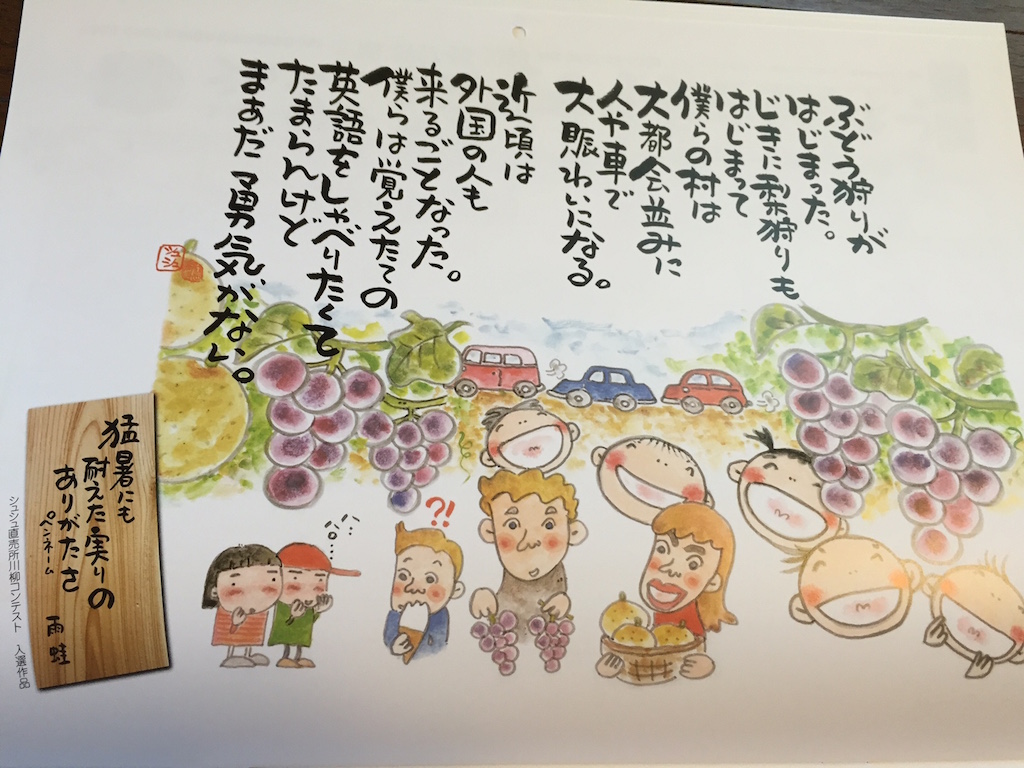 ぶどう狩りが
はじまった。
じきに梨狩りも
はじまって
僕らの村は
大都会並みに
人や車で
大賑わいになる。
近頃は
外国の人も
来るごとなった。
僕らは覚えたての
英語をしゃべりたくて
たまらんけど
まぁだ勇気がない。
シュシュ
?!
ハ、ハ
猛暑にも
耐えた実りの
ありがたさ
ペンネーム
雨蛙
シュシュ直売所川柳コンテスト 入選作品